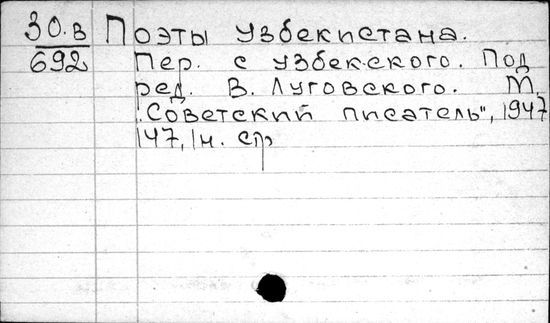 30.в Поэты Узбекистана.
692 Пер. с узбекского. Под
ред. В. Луговского. М,
"Советский писатель", 1947
147, 1 н. стр